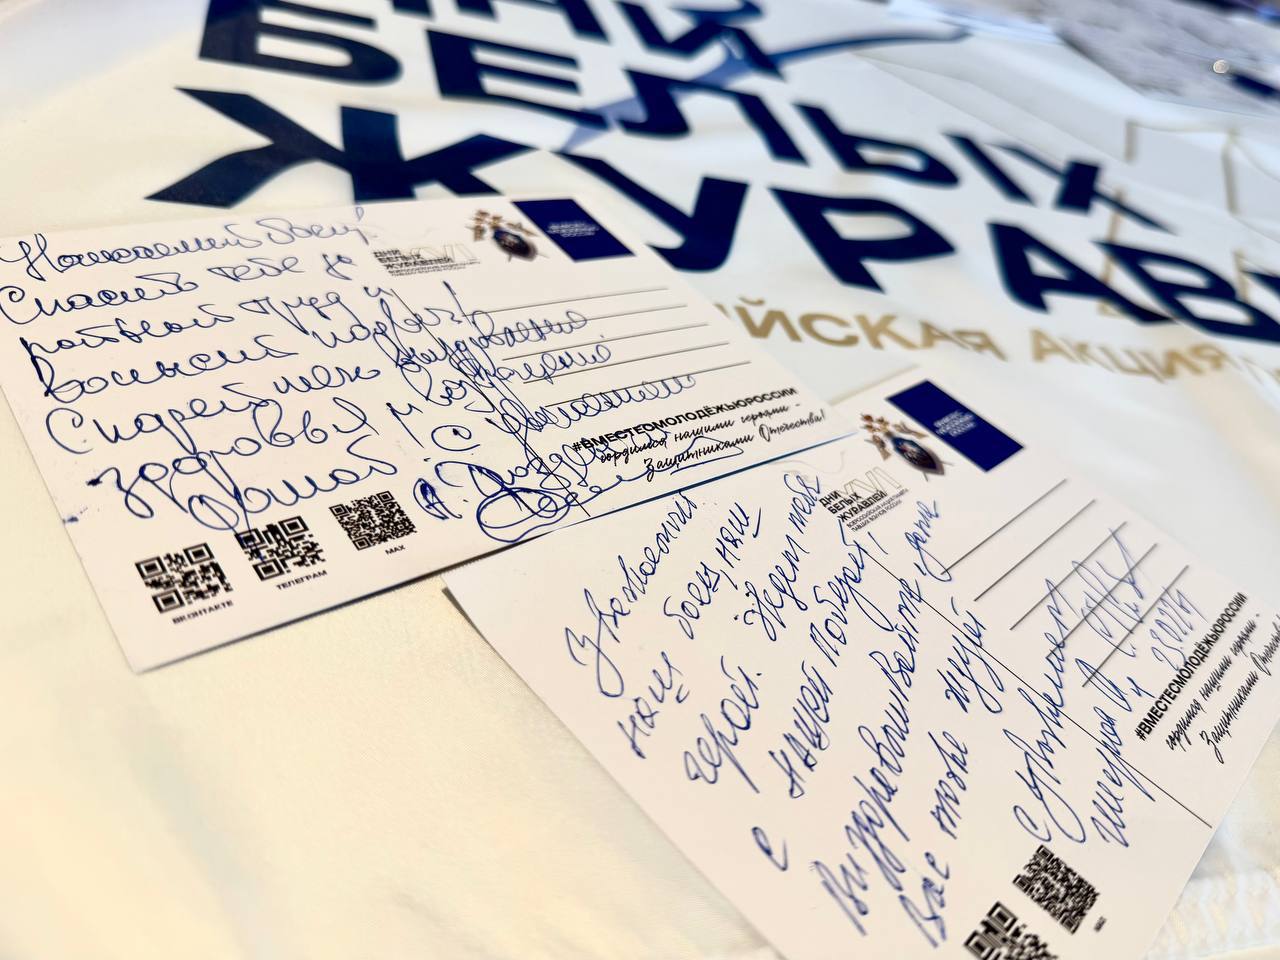 ДНИ
БЕЛЫХ
ЖУРАВЛ
ЙСКАЯ АКЦИЯ
Уважаемый боец!
Спасибо тебе за
ратный труд и
Воинский подвиг!
Скорейшего выздоровления
здоровья и возвращения
домой! С уважением
ДНИ
БЕЛЫХ
ЖУРАВЛЕЙ
XVI
#ВМЕСТЕСМОЛОДЁЖЬЮРОССИИ
гордимся нашими героями -
Защитниками Отечества!
ВКОНТАКТЕ
ТЕЛЕГРАМ
MAX
Уважаемый
наш боец, наш
герой. Ждем тебя
с нашей Победой!
Выздоравливайте, дома
Вас тоже ждут
С уважением
ДНИ
БЕЛЫХ
ЖУРАВЛЕЙ
XVI
#ВМЕСТЕСМОЛОДЁЖЬЮРОССИИ
гордимся нашими героями -
Защитниками Отечества
MAX